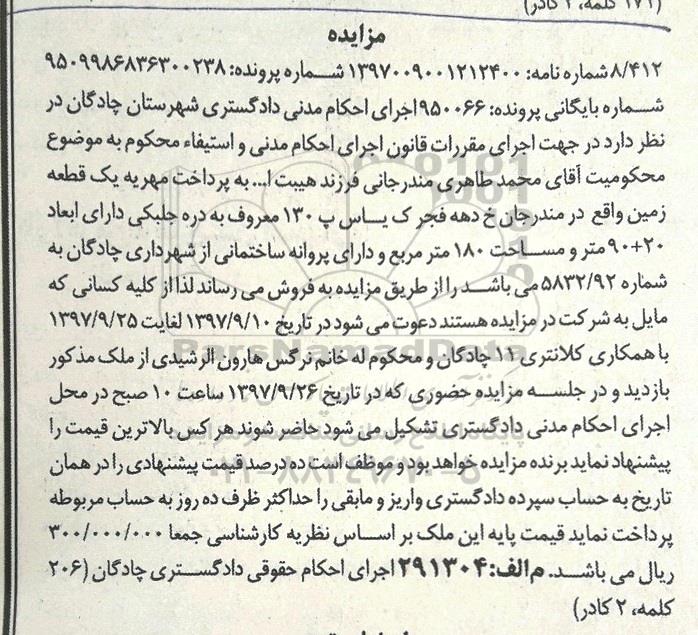 (۱۷۱ کلمه، ۲ کادر)
مزایده
۸/۴۱۲ شماره نامه: ۱۳۹۷۰۰۹۰۰۱۲۱۲۴۰۰ شماره پرونده: ۹۵۰۹۹۸۶۸۳۶۳۰۰۲۳۸
شماره بایگانی پرونده: ۹۵۰۰۶۶ اجرای احکام مدنی دادگستری شهرستان چادگان در
نظر دارد در جهت اجرای مقررات قانون اجرای احکام مدنی و استیفاء محکوم به موضوع
محکومیت آقای محمد طاهری مندرجانی فرزند هیبت ا... به پرداخت مهریه یک قطعه
زمین واقع در مندرجان خ دهه فجر ک یاس پ ۱۳۰ معروف به دره جلبکی دارای ابعاد
۲۰+۹۰ متر و مساحت ۱۸۰ متر مربع و دارای پروانه ساختمانی از شهرداری چادگان به
شماره ۵۸۳۲/۹۲ می باشد را از طریق مزایده به فروش می رساند لذا از کلیه کسانی که
مایل به شرکت در مزایده هستند دعوت می شود در تاریخ ۱۳۹۷/۹/۱۰ لغایت ۱۳۹۷/۹/۲۵
با همکاری کلانتری ۱۱ چادگان و محکوم له خانم نرگس هارون الرشیدی از ملک مذکور
بازدید و در جلسه مزایده حضوری که در تاریخ ۱۳۹۷/۹/۲۶ ساعت ۱۰ صبح در محل
اجرای احکام مدنی دادگستری تشکیل می شود حاضر شوند هر کس بالاترین قیمت را
پیشنهاد نماید برنده مزایده خواهد بود و موظف است ده درصد قیمت پیشنهادی را در همان
تاریخ به حساب سپرده دادگستری واریز و مابقی را حداکثر ظرف ده روز به حساب مربوطه
پرداخت نماید قیمت پایه این ملک بر اساس نظریه کارشناسی جمعا ۳۰۰/۰۰۰/۰۰۰
ریال می باشد. م الف: ۲۹۱۳۰۴ اجرای احکام حقوقی دادگستری چادگان (۲۰۶
کلمه، ۲ کادر)
ParsNamadData